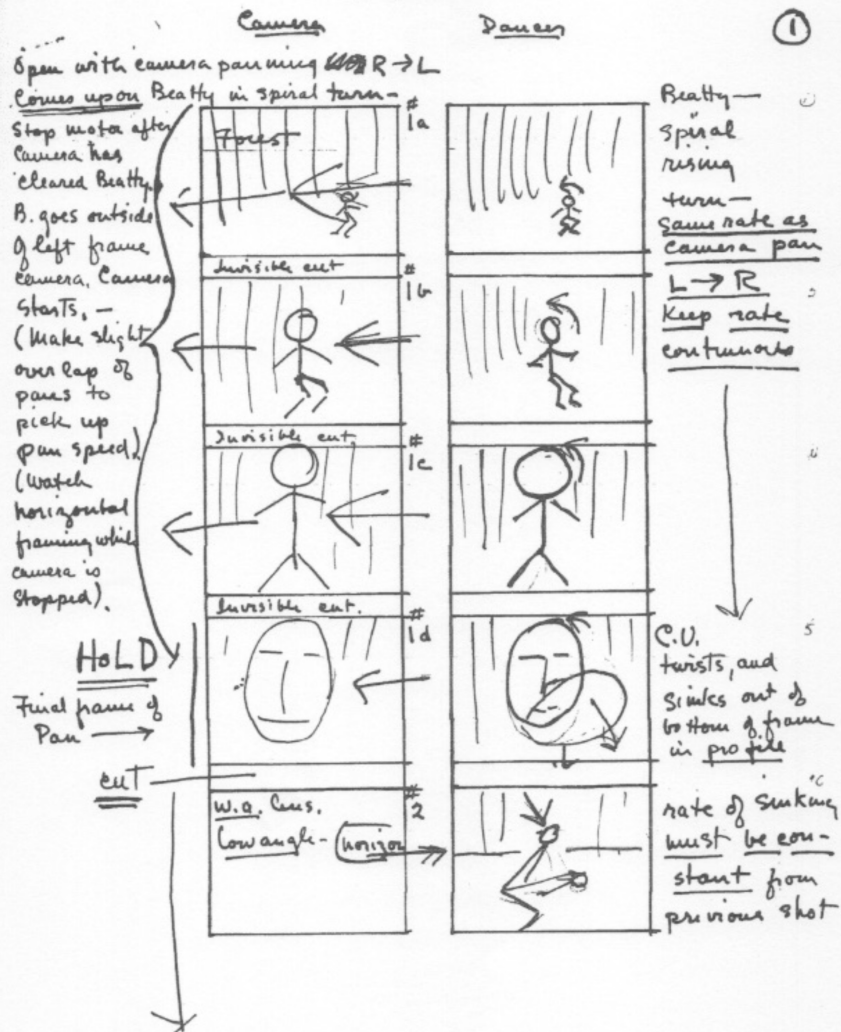 Camera
Dancer
1
Open with camera panning R → L
Comes upon Beatty in spiral turn -
Stop motor after
Camera has
cleared Beatty.
B. goes outside
of left frame
camera. Camera
starts. -
(Make slight
over lap of
pans to
pick up
pan speed)
(Watch
horizontal
framing while
camera is
stopped).
HOLD
Final frame of
Pan →
cut
# 1a
Forest
Invisible cut
# 1b
Invisible cut.
# 1c
Invisible cut.
# 1d
# 2
W.a. lens.
Low angle - horizon
Beatty —
spiral
rising
turn —
same rate as
camera pan
L → R
Keep rate
continuous
C.U.
twists, and
sinks out of
bottom of frame
in profile
rate of sinking
must be con-
stant from
previous shot